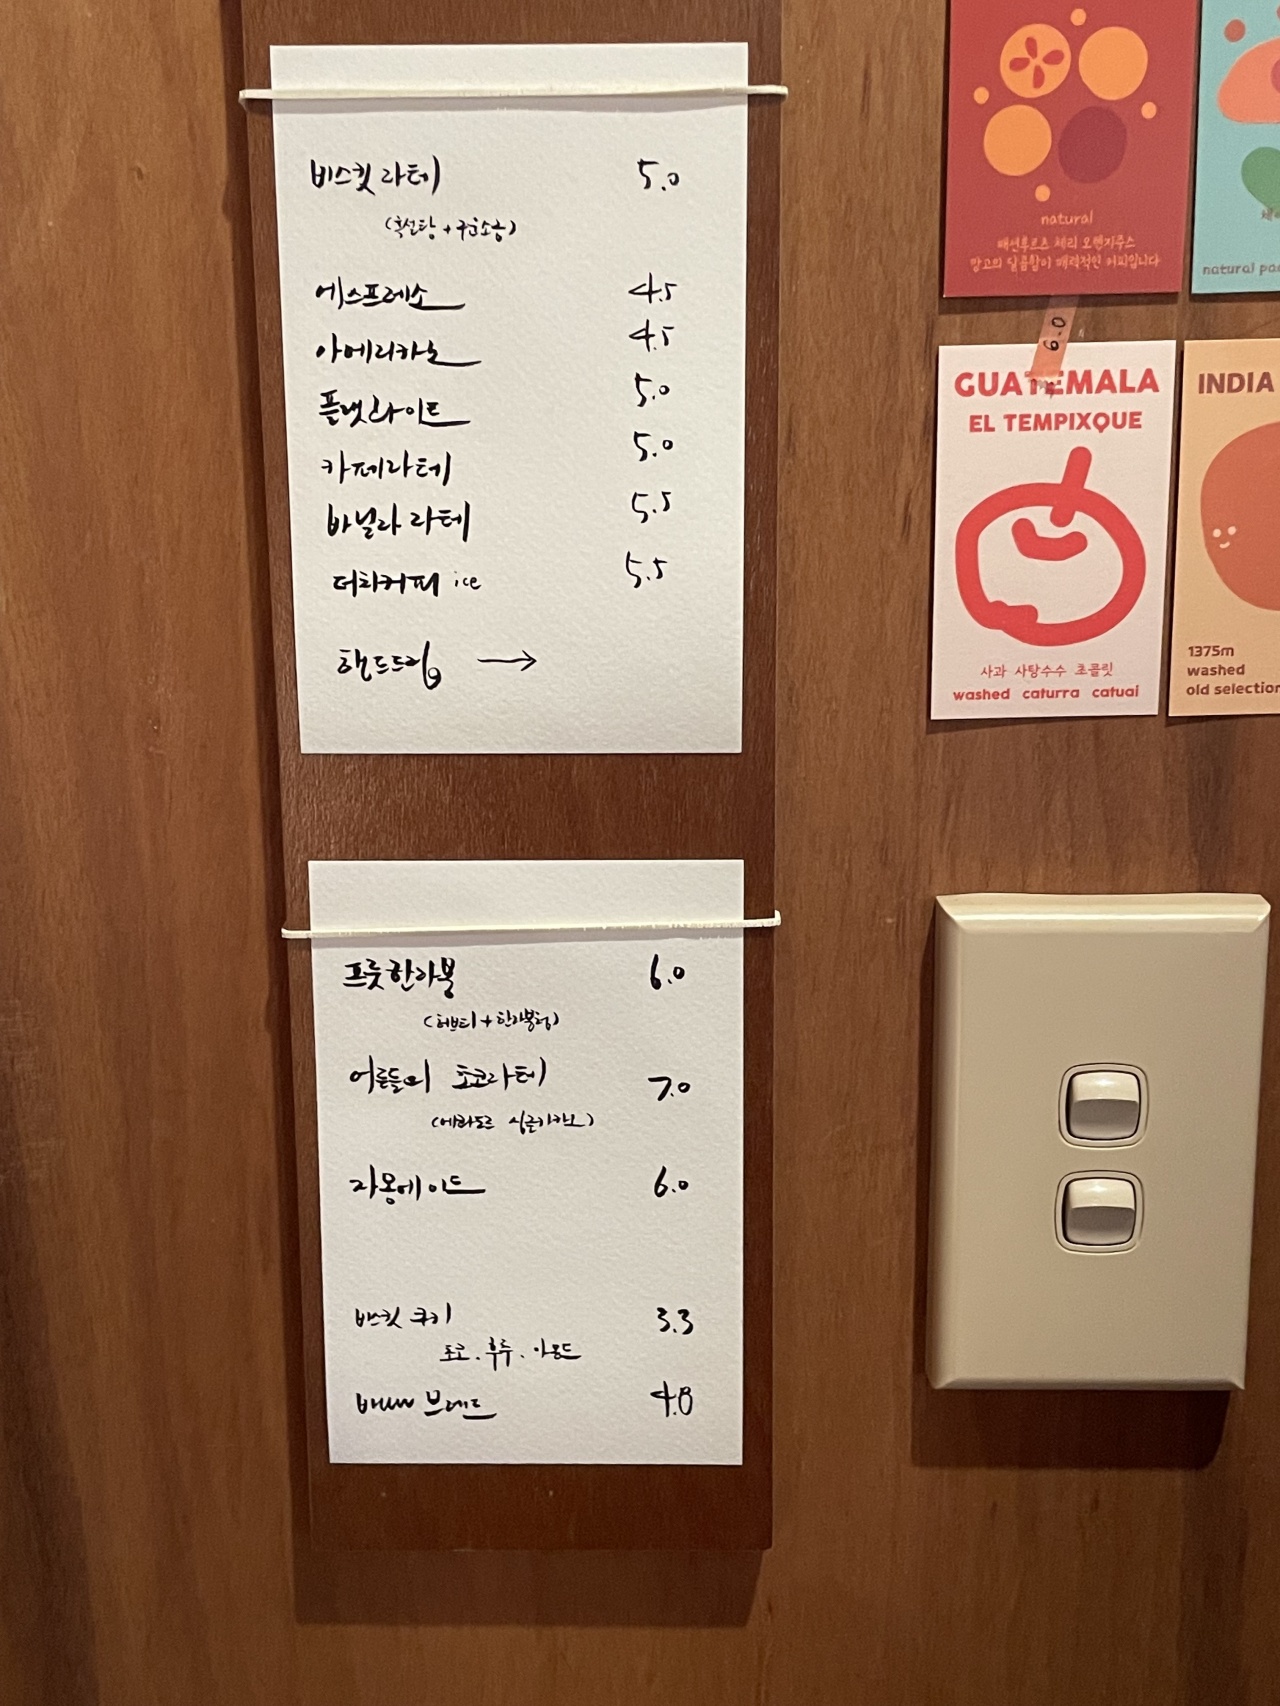 비스킷 라테 5.0
(흑설탕 + 구운소금)
에스프레소 4.5
아메리카노 4.5
플랫화이트 5.0
카페라테 5.0
바닐라 라테 5.5
더치커피 ice 5.5
핸드드립 →
프룻한라봉 6.0
(허브티 + 한라봉청)
어른들의 초코라테 7.0
자몽에이드 6.0
비스킷 쿠키 3.3
초코 . 후추 . 아몬드
바나나 브레드 4.8
natural
패션후르츠 체리 오렌지주스
망고의 달콤함이 매력적인 커피입니다
natural
6.0
GUATEMALA
EL TEMPIXQUE
사과 사탕수수 초콜릿
washed caturra catuai
INDIA
1375m
washed
old selection